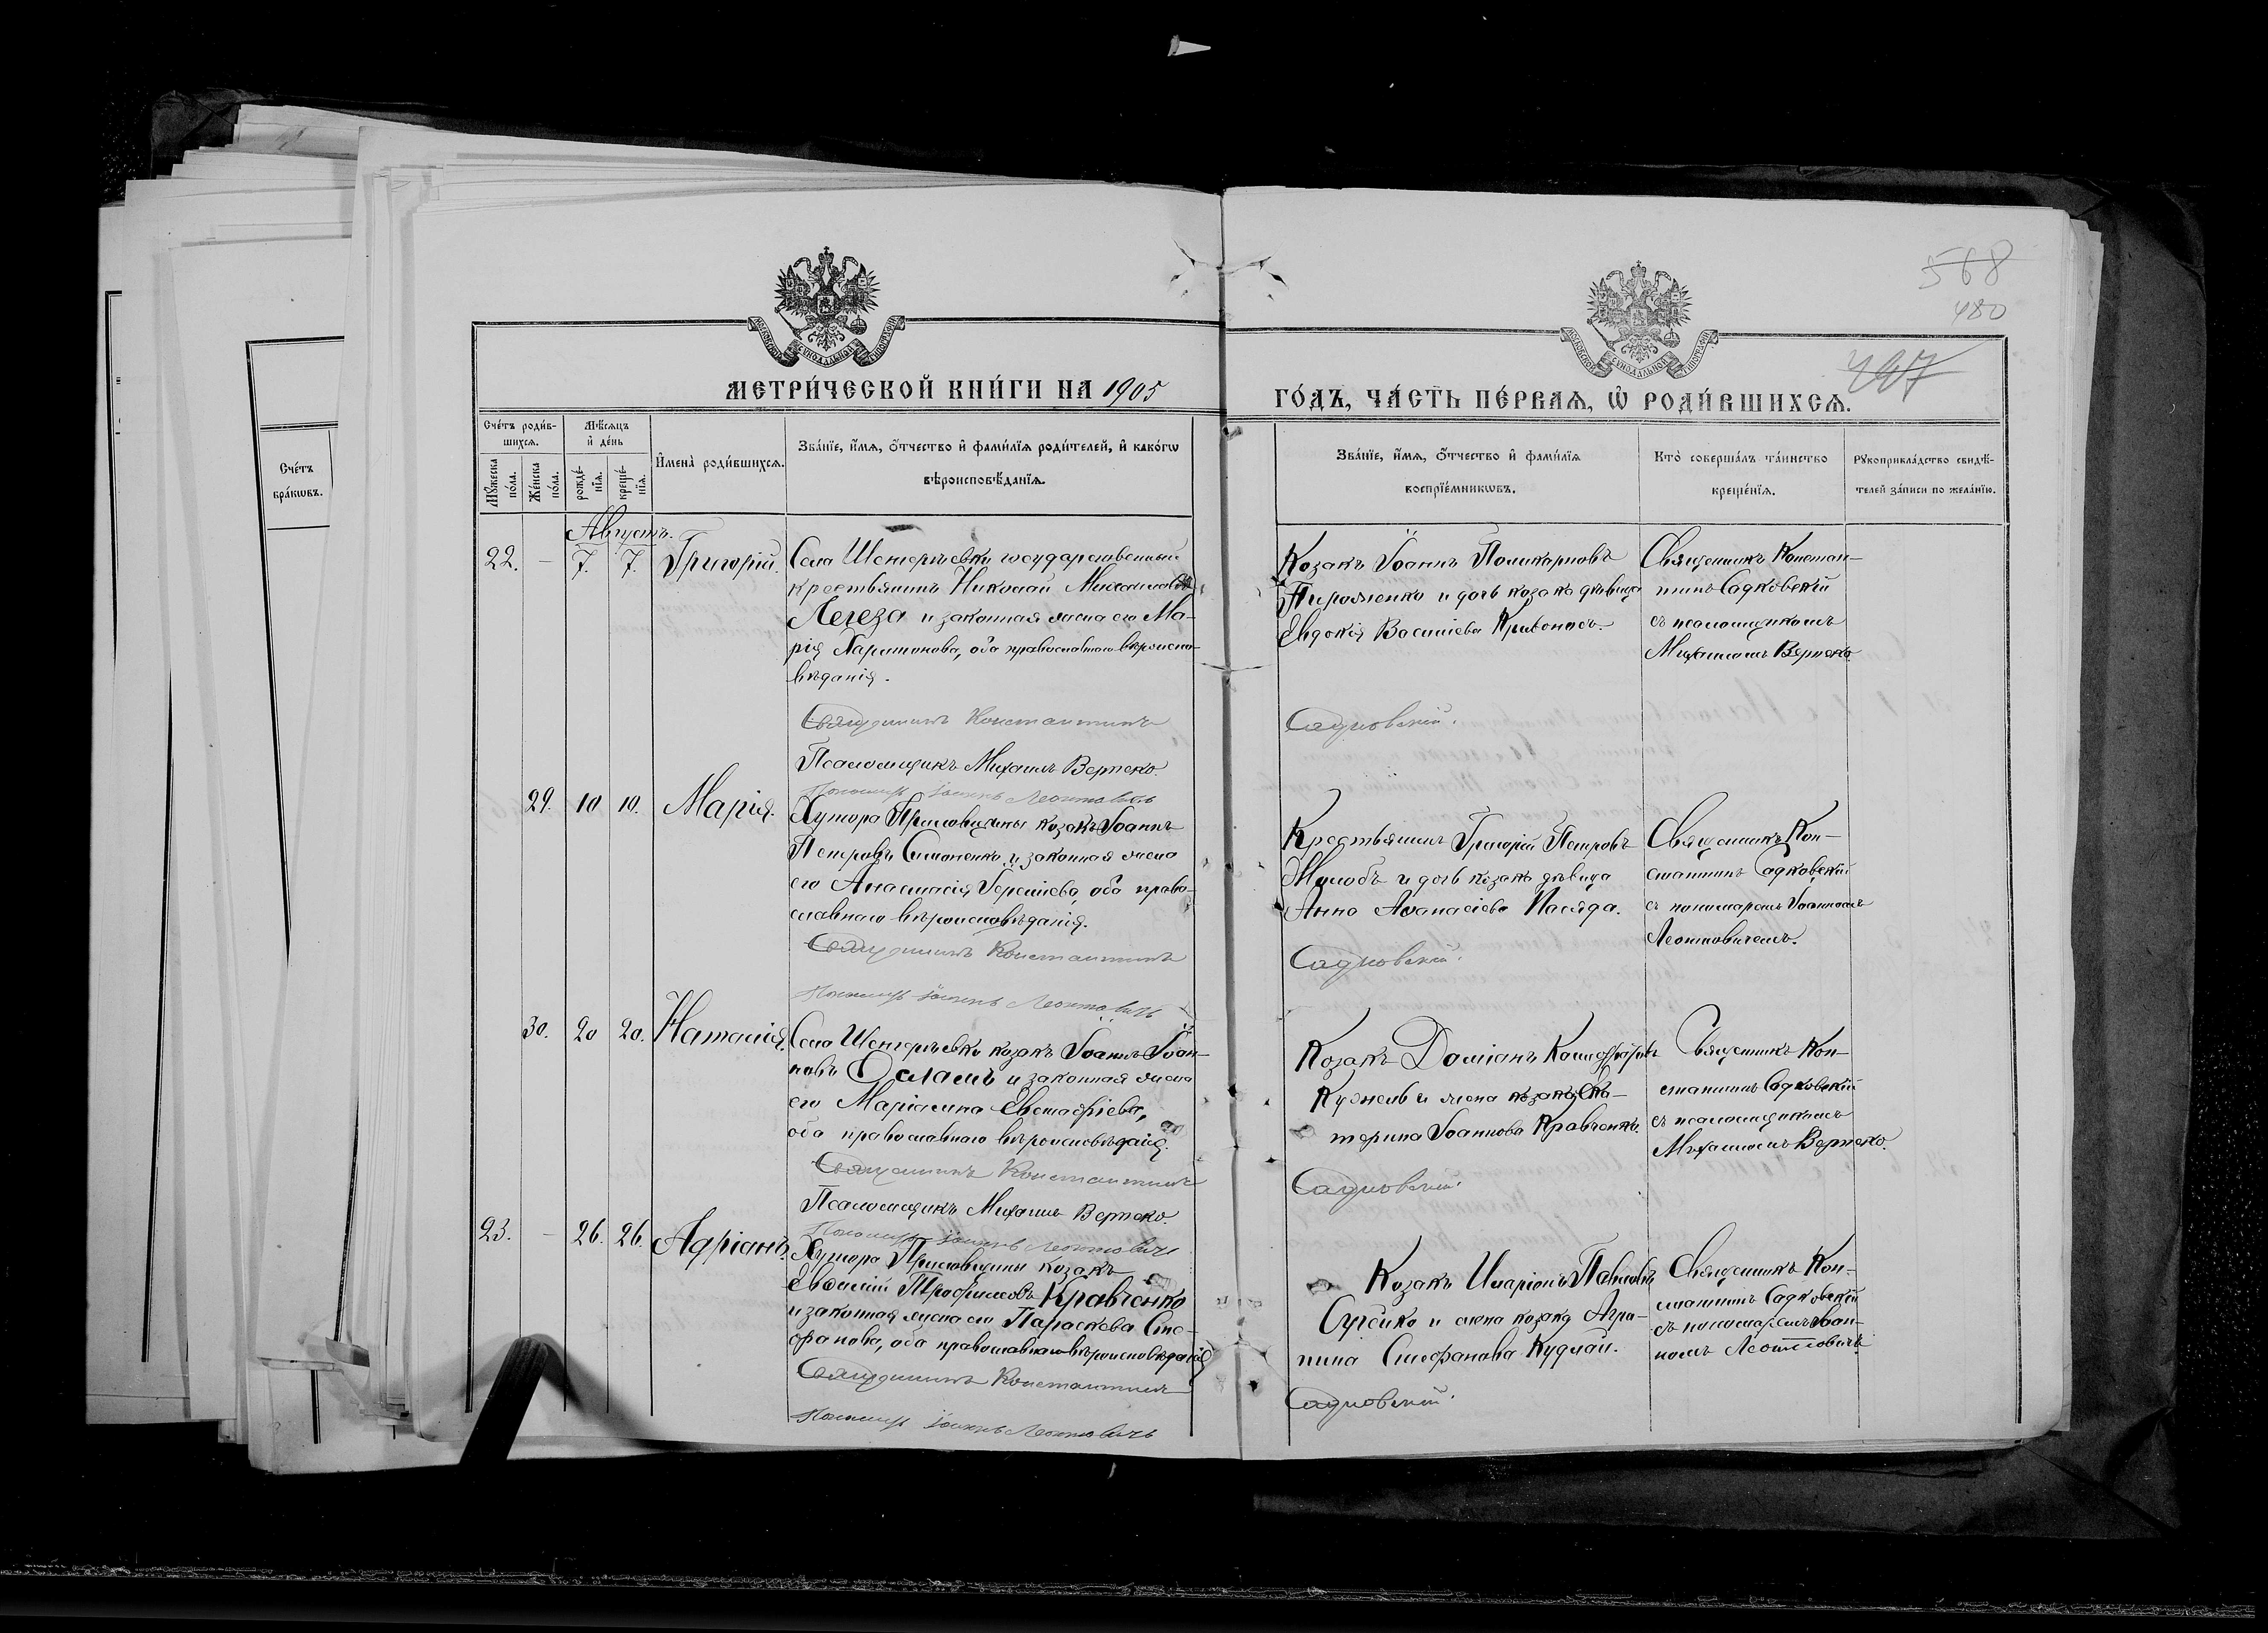 568
480
497
МОСКОВСКОЙ СѴНОДАЛЬНОЙ ТИПОГРАФІИ
МОСКОВСКОЙ СѴНОДАЛЬНОЙ ТИПОГРАФІИ
МЕТРИ́ЧЕСКОЙ КНИ́ГИ НА 1905
ГО́ДЪ, ЧА́СТЬ ПЕ́РВАЯ, Ѡ҆ РОДИ́ВШИХСЯ.
Сче́тъ бра́кѡвъ.
Сче́тъ роди́в-
шихся.
Мꙋ́жеска по́ла.
Же́нска по́ла.
Мѣ́сяцъ
и҆ де́нь
рожде́-
нїя.
креще́-
нїя.
И҆мена̀ роди́вшихся.
Зва́нїе, и҆́мя, ѻ҆́тчество и҆ фами́лїя роди́телей, и҆ како́гѡ
вѣроисповѣ́данїя.
Зва́нїе, и҆́мя, ѻ҆́тчество и҆ фами́лїя
воспрїе́мникѡвъ.
Кто̀ соверша́лъ та́инство
креще́нїя.
Рꙋкоприкла́дство свидѣ́-
телей за́писи по жела́нїю.
Августъ.
22. — 7. 7. Григорій.
Села Шенгерѣевки государственный
крестьянинъ Николай Михаиловъ
Легеза и законная жена его Ма-
рія Харитонова, оба православнаго вѣроиспо-
вѣданія.
Козакъ Іоаннъ Поликарповъ
Пироженко и дочь козака дѣвица
Евдокія Василіева Кривоносъ.
Священникъ Констан-
тинъ Садковскій
съ псаломщикомъ
Михаиломъ Вержеко.
Священникъ Константинъ
Садковскій.
Псаломщикъ Михаилъ Вержеко.
Пономарь Іоаннъ Леонтовичъ
29. 10 10. Марія.
Хутора Присовщины козакъ Іоаннъ
Петровъ Симоненко и законная жена
его Анастасія Іереміева, оба право-
славнаго вѣроисповѣданія.
Крестьянинъ Григорій Петровъ
и дочь козака дѣвица
Анна Аѳанасіева
Священникъ Кон-
стантинъ Садковскій
съ пономаремъ Іоанномъ
Леонтовичемъ.
Священникъ Константинъ
Садковскій.
Пономарь Іоаннъ Леонтовичъ
30. 20 20. Наталія.
Села Шенгерѣевки козакъ Іоаннъ Іоан-
новъ и законная жена
его Маріамна Евстафіева,
оба православнаго вѣроисповѣданія.
Козакъ Даміанъ
Кужель и жена козака Ека-
терина Іоаннова Кравченкъ.
Священникъ Кон-
стантинъ Садковскій
съ псаломщикомъ
Михаиломъ Вержеко.
Священникъ Константинъ
Садковскій.
Псаломщикъ Михаилъ Вержеко.
Пономарь Іоаннъ Леонтовичъ
23. — 26. 26. Адріанъ.
Хутора Присовщины козакъ
Евѳимій Трофимовъ Кравченко
и законная жена его Параскева Сте-
фанова, оба православнаго вѣроисповѣданія
Козакъ Иларіонъ Павловъ
и жена козака Агри-
пина Стефанова Кудлай.
Священникъ Кон-
стантинъ Садковскій
съ пономаремъ Іоан-
номъ Леонтовичъ
Священникъ Константинъ
Садковскій.
Пономарь Іоаннъ Леонтовичъ